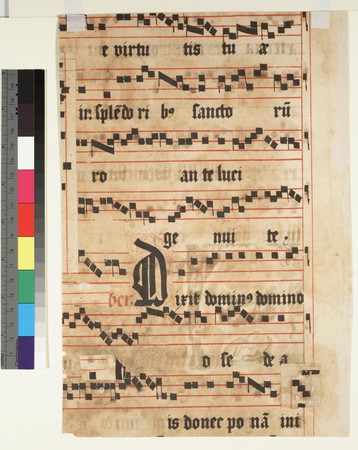 e virtu tis tu æ
in splēdo ri bꝰ sancto rū
ro an te luci
ge nui te
Dirit dominꝰ domino
o se de a
is donec po nā ini